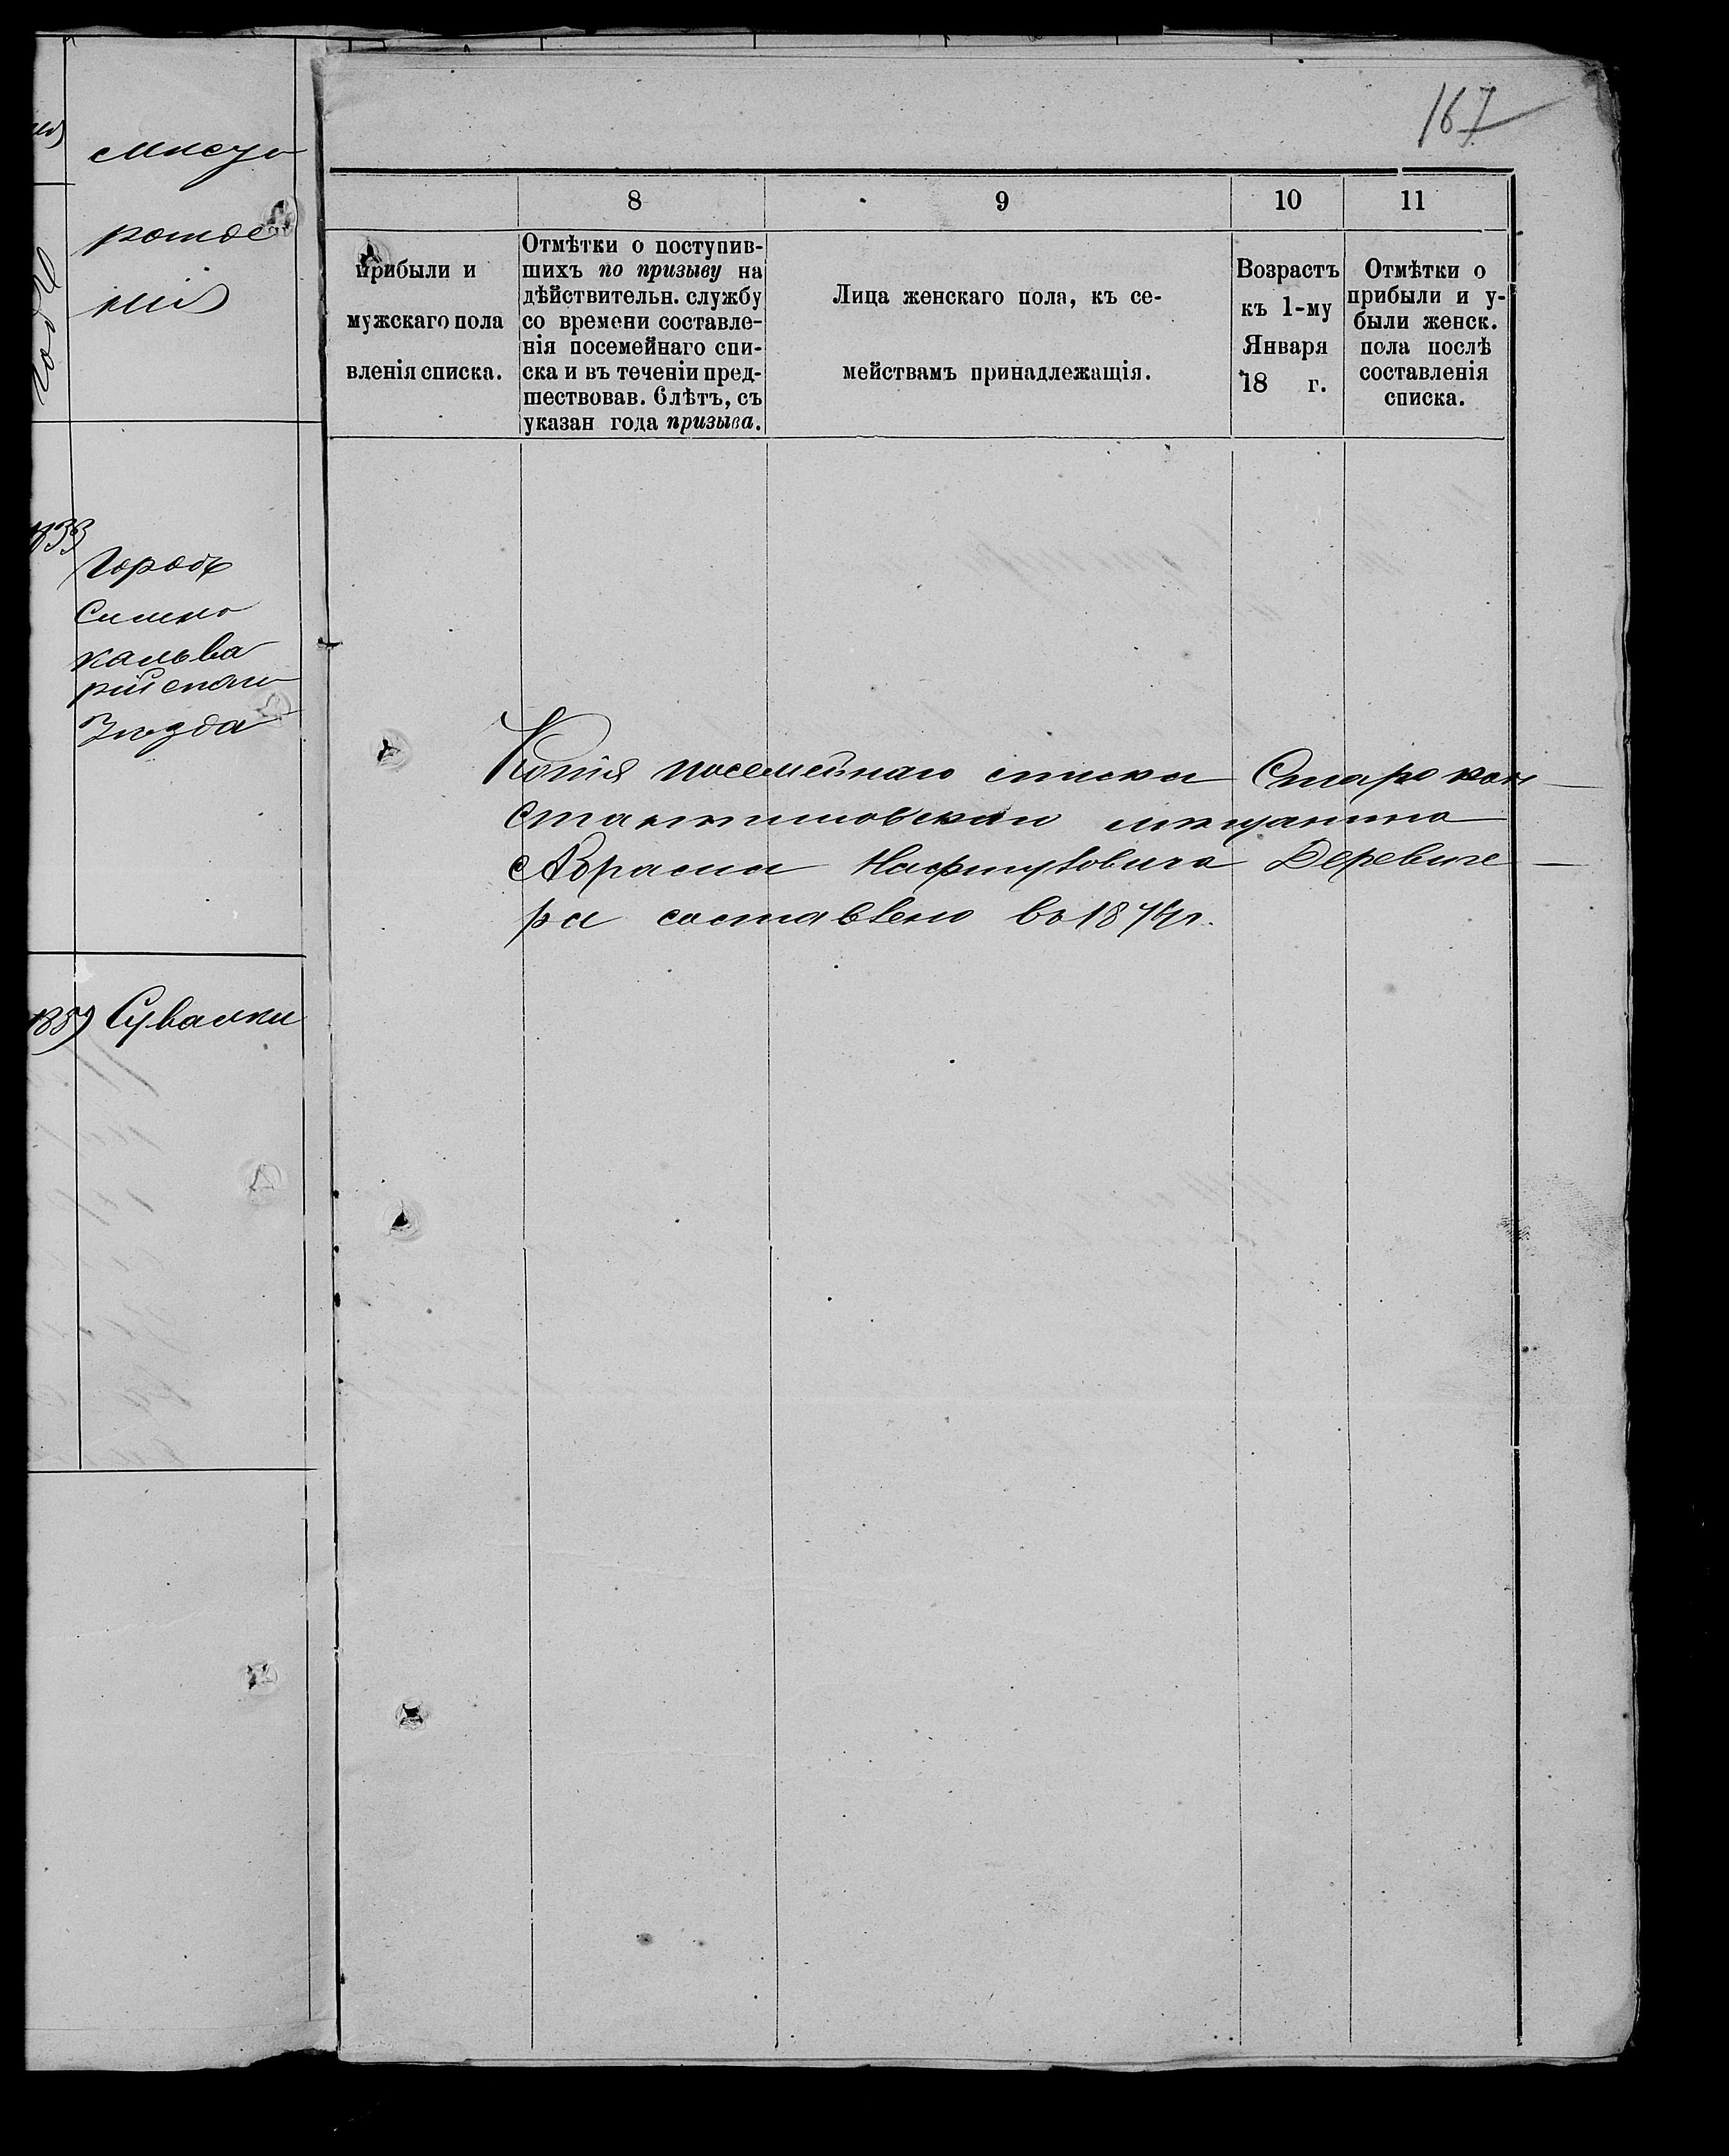 Мѣсто
рожде
нія
1833
Городъ
Симно
Кальва
рійскаго
Уѣзда
1859 Сувалки
167
8 9 10 11
прибыли и
мужскаго пола
вленія списка.
Отмѣтки о поступив-
шихъ по призыву на
дѣйствительн. службу
со времени составле-
нія посемейнаго спи-
ска и въ теченіи пред-
шествовав. 6 лѣтъ, съ
указан года призыва.
Лица женскаго пола, къ се-
мействамъ принадлежащія.
Возрастъ
къ 1-му
Января
18 г.
Отмѣтки о
прибыли и у-
были женск.
пола послѣ
составленія
списка.
Копія посемейнаго списка Старокон-
стантиновскаго мѣщанина
Абрама Деревіе-
ра составлено въ 1874 г.